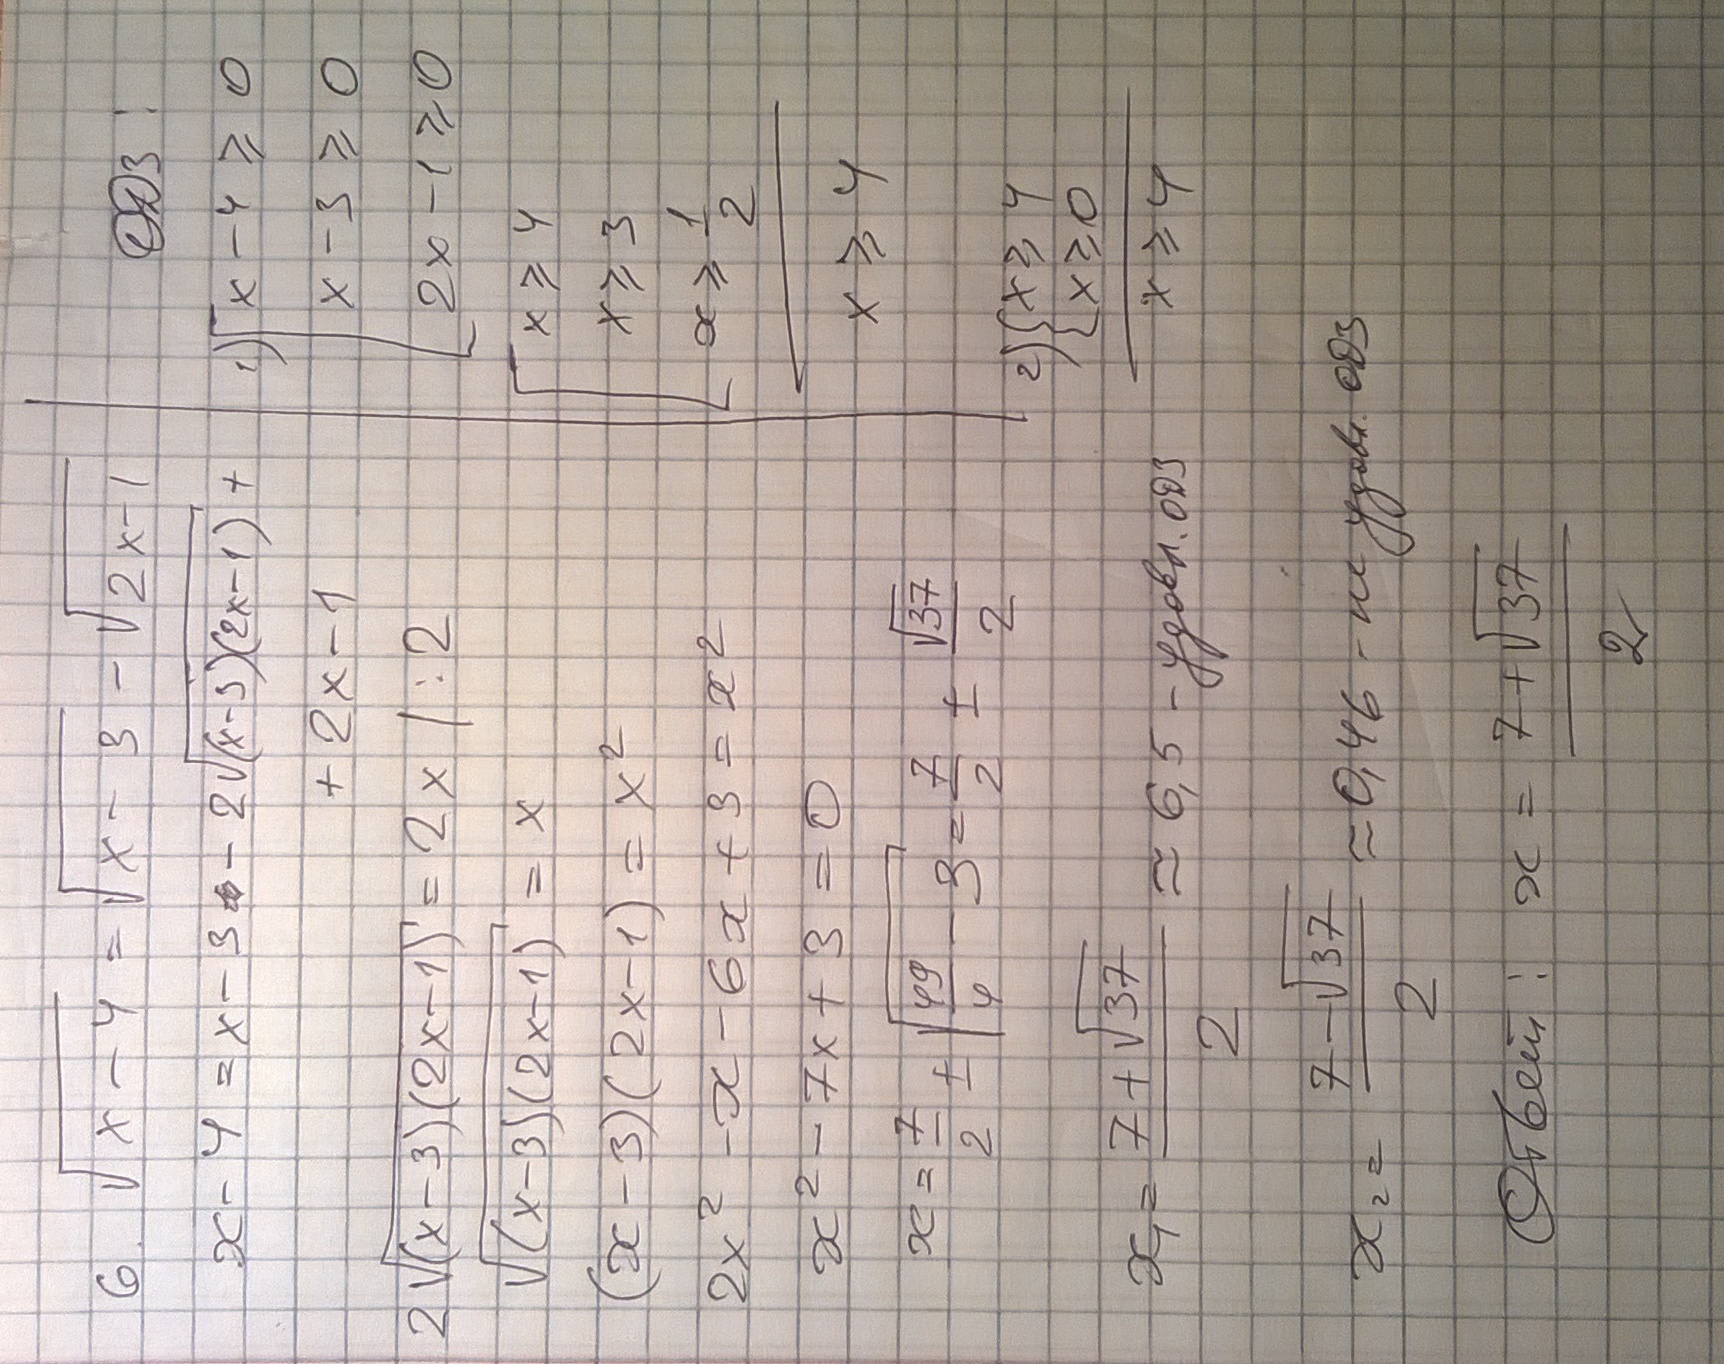 6. √(x-4) = √(x-3) - √(2x-1)
x-4 = x-3 - 2√((x-3)(2x-1)) +
+ 2x-1
2√((x-3)(2x-1)) = 2x |:2
√((x-3)(2x-1)) = x
(x-3)(2x-1) = x²
2x² - x - 6x + 3 = x²
x² - 7x + 3 = 0
x = 7/2 ± √(49/4 - 3) = 7/2 ± √37/2
x₁ = (7+√37)/2 ≈ 6,5 - удовл. ОДЗ
x₂ = (7-√37)/2 ≈ 0,46 - не удовл. ОДЗ
Ответ: x = (7+√37)/2
ОДЗ:
1) [x-4 ≥ 0
x-3 ≥ 0
2x-1 ≥ 0
[x ≥ 4
x ≥ 3
x ≥ 1/2
x ≥ 4
2) {x ≥ 4
{x ≥ 0
x ≥ 4